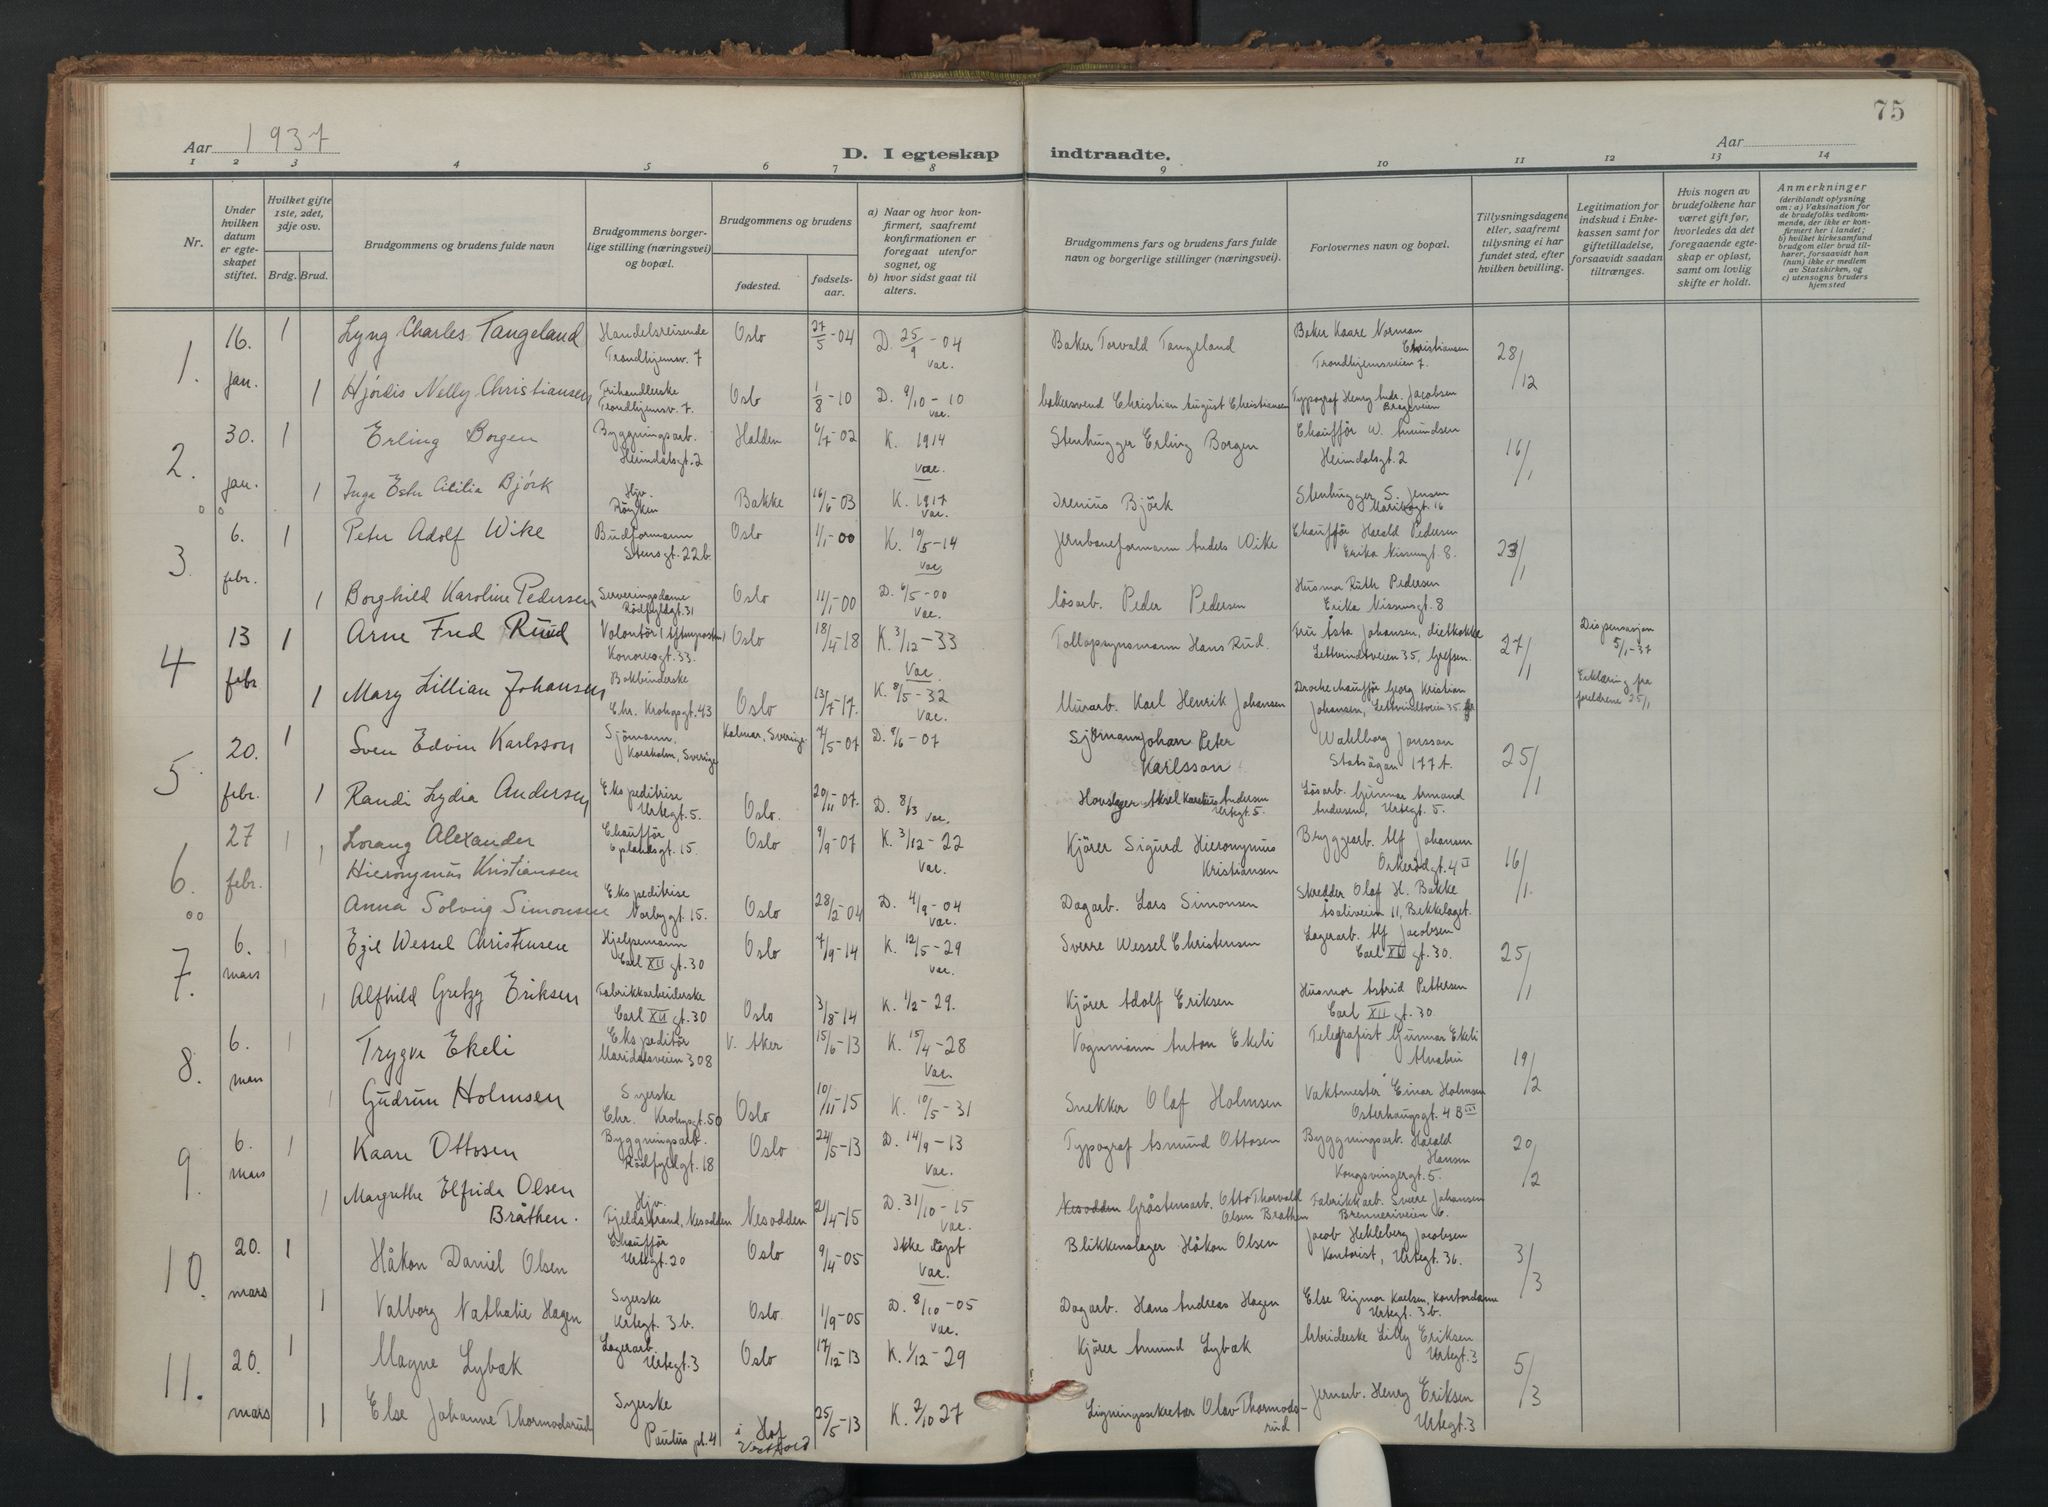 75
Aar 1937
D. I egteskap indtraadte.
Aar
1 2 3 4 5 6 7 8 9 10 11 12 13 14
Nr.
Under hvilken datum er egteskapet stiftet.
Hvilket gifte 1ste, 2det, 3dje osv.
Brdg. Brud.
Brudgommens og brudens fulde navn
Brudgommens borgerlige stilling (næringsvei) og bopæl.
Brudgommens og brudens
fødested.
fødselsaar.
a) Naar og hvor konfirmert, saafremt konfirmationen er foregaat utenfor sognet, og
b) hvor sidst gaat til alters.
Brudgommens fars og brudens fars fulde navn og borgerlige stillinger (næringsvei).
Forlovernes navn og bopæl.
Tillysningsdagene eller, saafremt tillysning ei har fundet sted, efter hvilken bevilling.
Legitimation for indskud i Enkekassen samt for giftetilladelse, forsaavidt saadan tiltrænges.
Hvis nogen av brudefolkene har været gift før, hvorledes da det foregaaende egteskap er opløst, samt om lovlig skifte er holdt.
Anmerkninger (deriblandt oplysning om: a) Vaksination for de brudefolks vedkommende, der ikke er konfirmert her i landet; b) hvilket kirkesamfund brudgom eller brud tilhører, forsaavidt han (hun) ikke er medlem av Statskirken, og c) utensogns bruders hjemsted
1. 16. jan. 1 Lyng Charles Tangeland Handelsreisende Trondhjemsv. 7 Oslo 27/5-04 D. 25/9-04 vac. Baker Torvald Tangeland Baker Kaare Norman Christiansen Trondhjemsveien 7. 28/12
1 Hjördis Nelly Christiansen Trondhjemsv. 7. Oslo 1/8-10 D. 9/10-10 vac. bakersvend Christian August Christiansen Typograf Henry Andr. Jacobsen
2. 30. jan. 1 Erling Borgen Byggningsarb. Heimdalsgt. 2 Halden 6/7-02 K. 1914 vac. Stenhugger Erling Borgen Chaufför W. Amundsen Heimdalsgt. 2 16/1
1 Inga Ester Cicilia Björk Hjv. Röyken Bakke 16/6-03 K. 1917 vac. Irenius Björk Stenhugger S. Jensen
3. 6. febr. 1 Peter Adolf Wike Budformann Stensgt. 22b. Oslo 1/1-00 K. 10/5-14 vac. Jernbaneformann Anders Wike Chaufför Harald Pedersen Erika Nissensgt. 8. 23/1
1 Borghild Karoline Pedersen Serveringsdame Rödfyldgt. 31 Oslo 11/1-00 D. 6/5-00 vac. lösarb. Peder Pedersen Husmor Ruth Pedersen Erika Nissensgt. 8
4 13 febr 1 Arne Fred Ruud Volontör (Aftenposten) 33. Oslo 18/4-18 K. 3/12-33 vac. Tollopsynsmann Hans Rud. Fru Åsta Johansen, Lettvindtveien 35, Grefsen. 27/1 Dispensasjon 5/1-37
1 Mary Lillian Johansen Bokbinderske Chr. Krohgsgt. 43 Oslo 13/7-17. K. 8/5-32 vac. Murarb. Karl Henrik Johansen Droschechaufför Georg Kristian Johansen, Lettvindtveien 35 Erklæring fra foreldrene 25/1
5 20. febr. 1 Sven Edvin Karlsson Sjömann, Sverige Kalmar, Sverige. 7/5-07 D. 9/6-07 Sjömann Johan Peter Karlsson Wahlborg Jonsson 25/1
1 Randi Lydia Andersen Ekspeditrise Urtegt. 5. Oslo. 20/11-07. D. 8/3 vac. Hovslager Aksel Andersen Urtegt. 5. Lösarb. Gunnar Armand Andersen, Urtegt. 5.
6. 27 febr. 1 Lorang Alexander Hieronymus Kristiansen Chaufför 15. Oslo 9/9-07 K. 3/12-22 vac. Kjörer Sigurd Hieronymus Kristiansen Bryggearb. Alf Johansen 4 II 16/1.
1 Anna Solveig Simonsen Ekspeditrise Norbygt. 15. Oslo 28/2-04 D. 4/9-04 vac. Dagarb. Lars Simonsen Skredder Olaf H. Bakke 11, Bekkelaget.
7. 6. mars 1 Egil Wessel Christensen Hjelpemann Carl XII gt. 30 Oslo 7/9-14 K. 12/5-29 vac. Sverre Wessel Christensen Lagerarb. Alf Jacobsen Carl XII gt. 30. 25/1
1 Alfhild Gretzy Eriksen Fabrikkarbeiderske Carl XII gt. 30 Oslo 3/8-14 K. 1/2-29. Kjörer Adolf Eriksen Husmor Astrid Pettersen Carl XII gt. 30.
8. 6. mars 1 Trygve Ekeli Ekspeditör Maridalsveien 308 V. Aker 15/6-13 K. 15/4-28 vac. Vognmann Anton Ekeli Telegrafist Gunnar Ekeli Alnabru 19/2
1 Gudrun Holmsen Syerske Chr. Krohgsgt. 50 Oslo 10/11-15 K. 10/5-31 Snekker Olaf Holmsen Vaktmester Einar Holmsen Osterhausgt. 4 B III
9. 6. mars 1 Kaare Ottosen Byggningsarb. Rödfyldgt. 18 Oslo 24/5-13 D. 14/9-13 vac. Typograf Asmund Ottosen Byggningsarb. Harald Hansen Kongsvingergt. 5. 20/2
1 Margrethe Elfrida Olsen Bråthen. Hjv. Fjeldstrand, Nesodden Nesodden 21/4-15 D. 31/10-15 vac. Nesodden Gråstensarb. Otto Thorvald Olsen Bråthen Fabrikkarb. Sverre Johansen Brenneriveien 6.
10. 20. mars 1 Håkon Daniel Olsen Chaufför Urtegt. 20 Oslo 9/4-05 Ikke döpt vac. Blikkenslager Håkon Olsen Jacob Hekleberg Jacobsen Kontorist, Urtegt. 36. 3/3
1 Valborg Nathalie Hagen Syerske Urtegt. 3b. Oslo 1/9-05 D. 8/10-05 vac. Dagarb. Hans Andreas Hagen Else Rigmor Karlsen, Kontordame Urtegt. 3b.
11. 20. mars 1 Magne Lybæk Lagerarb. Urtegt. 3 Oslo 17/12-13 K. 1/12-29 Kjörer Amund Lybæk Arbeiderske Lilly Eriksen Urtegt. 3 5/3
1 Else Johanne Thormodsrud Syerske Paulus pl. 4 i Hof Vestfold 25/5-13 K. 2/10 27 Ligningssekretær Olav Thormodsrud Jernarb. Henry Eriksen Urtegt. 3